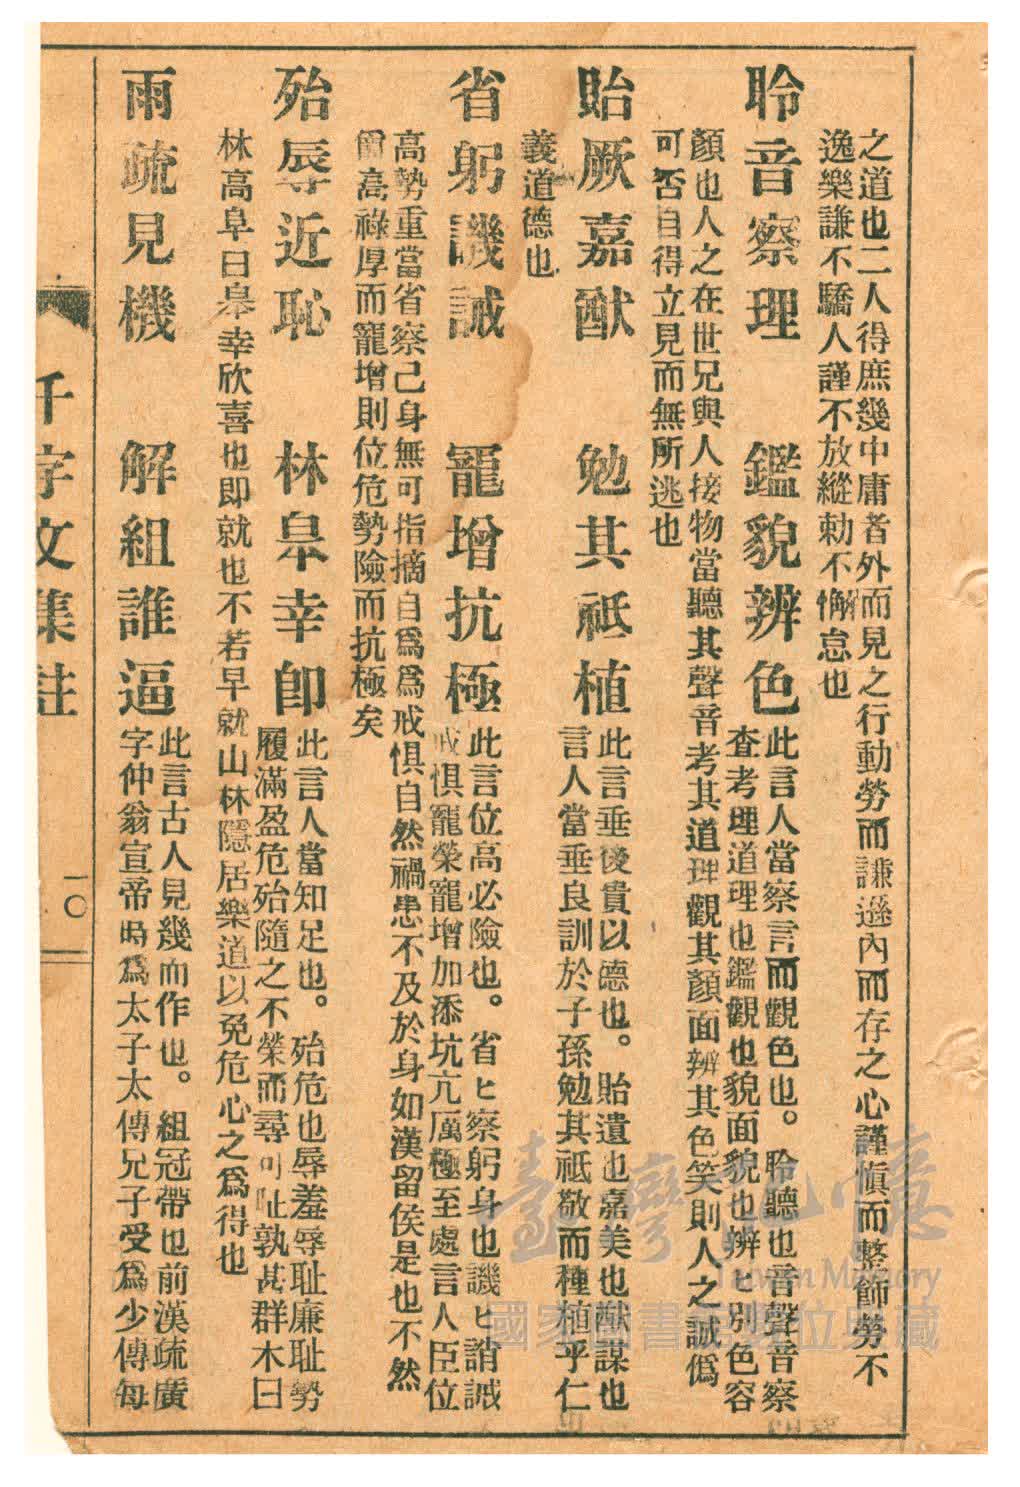 之道也二人得庶幾中庸者外而見之行動勞而謙遜內而存之心謹愼而整飾勞不
逸樂謙不驕人謹不放縱勅不懈怠也
聆音察理　鑑貌辨色
此言人當察言而觀色也。聆聽也音聲音察
查考理道理也鑑觀也貌面貌也辨ヒ別色容
顏也人之在世兄與人接物當聽其聲音考其道理觀其顏面辨其色笑則人之誠僞
可否自得立見而無所逃也
貽厥嘉猷　勉其祗植
此言垂後貴以德也。貽遺也嘉美也猷謀也
言人當垂良訓於子孫勉其祗敬而種植乎仁
義道德也
省躬譏誡　寵增抗極
此言位高必險也。省ヒ察躬身也譏ヒ誚誡
戒惧寵榮寵增加添坑亢厲極至處言人臣位
高勢重當省察己身無可指摘自爲爲戒惧自然禍患不及於身如漢留侯是也不然
爵高祿厚而寵增則位危勢險而抗極矣
殆辱近恥　林皐幸卽
此言人當知足也。殆危也辱羞辱耻廉耻勢
履滿盈危殆隨之不榮而尋可耻孰甚群木曰
林高阜曰皐幸欣喜也即就也不若早就山林隱居樂道以免危心之爲得也
兩疏見機　解組誰逼
此言古人見幾而作也。組冠帶也前漢疏廣
字仲翁宣帝時爲太子太傅兄子受爲少傅每
千字文集註
一〇
臺灣記憶
Taiwan Memory
國家圖書館數位典藏